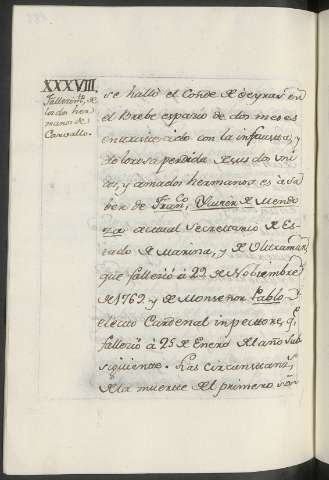 XXXVIII.
Fallecim.to de
los dos her-
manos de
Carvallo.
se halló el Conde de Oeyras en
el Brebe espacio de dos meses
enturvecido con la infausta, y
dolorosa perdida de sus dos uni-
cos, y amados hermanos es à sa-
ber de Fran.co Xavier de Mendo-
za actual Secretario de Es-
tado de Marina, y de Ultramar
que falleziò à 22 de Noviembre
de 1769 y de Monseñor Pablo
electo Cardenal inpectore, q.e
fallezió à 25 de Enero del año sub-
siguiente. Las circunstancias
de la muerte del primero son